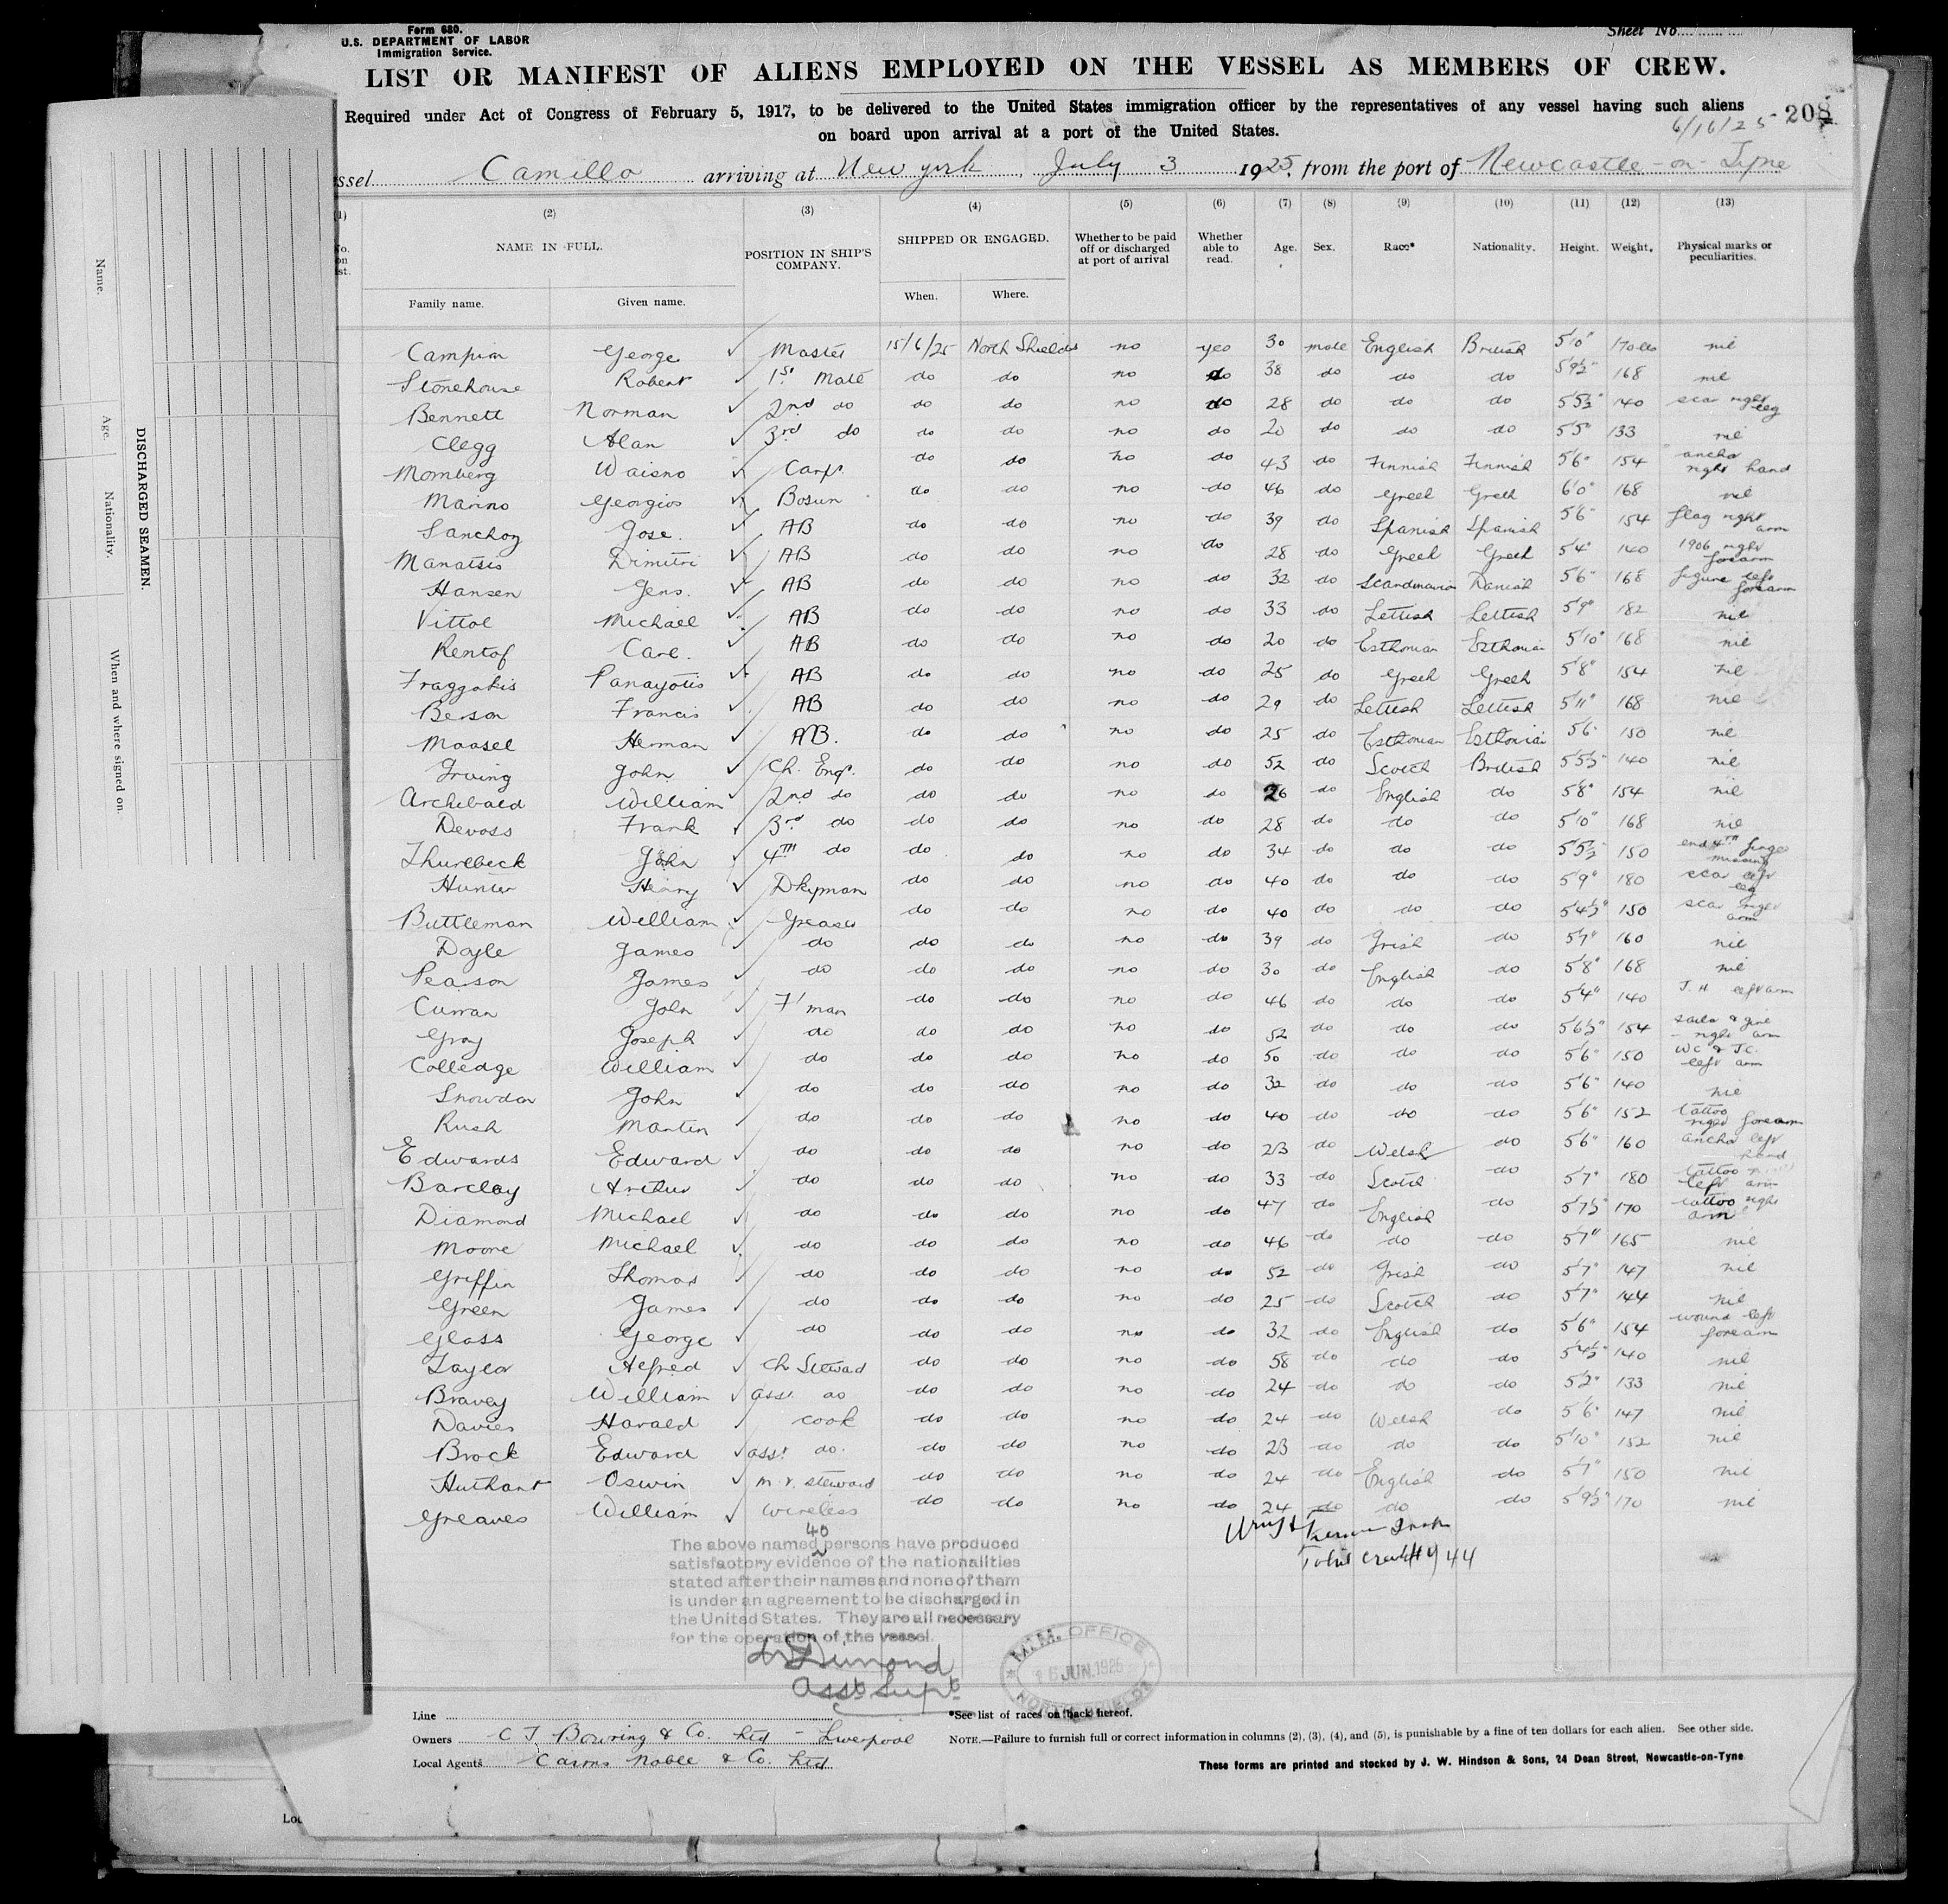 Form 680.
U.S. DEPARTMENT OF LABOR
Immigration Service.
Sheet No.
LIST OR MANIFEST OF ALIENS EMPLOYED ON THE VESSEL AS MEMBERS OF CREW.
Required under Act of Congress of February 5, 1917, to be delivered to the United States immigration officer by the representatives of any vessel having such aliens
on board upon arrival at a port of the United States.
6/16/25 208
ssel Camillo arriving at New york, July 3 1925, from the port of Newcastle-on-Tyne
(1) (2) (3) (4) (5) (6) (7) (8) (9) (10) (11) (12) (13)
NAME IN FULL. POSITION IN SHIP'S COMPANY. SHIPPED OR ENGAGED. Whether to be paid off or discharged at port of arrival Whether able to read. Age. Sex. Race* Nationality. Height. Weight. Physical marks or peculiarities.
Family name. Given name. When. Where.
Campion George Master 15/6/25 North Shields no yes 30 male English British 5'10" 170 lbs nil
Stonehouse Robert 1st Mate do do no do 38 do do do 5'9½" 168 nil
Bennett Norman 2nd do do do no do 28 do do do 5'5½" 140 scar right leg
Clegg Alan 3rd do do do no do 20 do do do 5'5" 133 nil
Momberg Waisno Carpr do do no do 43 do Finnish Finnish 5'6" 154 anchor right hand
Marino Georgios Bosun do do no do 46 do Greek Greek 6'0" 168 nil
Sanchoz Jose. AB do do no do 39 do Spanish Spanish 5'6" 154 flag right arm
Manatsis Dimitri AB do do no do 28 do Greek Greek 5'4" 140 1906 right forearm
Hansen Jens. AB do do no do 32 do Scandinavian Danish 5'6" 168 figure left forearm
Vittol Michael AB do do no do 33 do Lettish Lettish 5'9" 182 nil
Rentof Carl. AB do do no do 20 do Esthonian Esthonian 5'10" 168 nil
Fraggakis Panayotis AB do do no do 25 do Greek Greek 5'8" 154 nil
Berson Francis AB do do no do 29 do Lettish Lettish 5'11" 168 nil
Maasel Herman AB. do do no do 25 do Esthonian Esthonian 5'6" 150 nil
Irving John Ch. Engr. do do no do 52 do Scotch British 5'5½" 140 nil
Archibald William 2nd do do do no do 26 do English do 5'8" 154 nil
Devoss Frank 3rd do do do no do 28 do do do 5'10" 168 nil
Thurlbeck John 4TH do do do no do 34 do do do 5'5½" 150 end 4th finger missing
Hunter Henry Dkyman do do no do 40 do do do 5'9" 180 scar left leg
Buttleman William Greaser do do no do 40 do do do 5'4½" 150 scar right arm
Doyle James do do do no do 39 do Irish do 5'7" 160 nil
Pearson James do do do no do 30 do English do 5'8" 168 nil
Curran John F'man do do no do 46 do do do 5'4" 140 J. H left arm
Gray Joseph do do do no do 52 do do do 5'6½" 154 sailor & girl right arm
Colledge William do do do no do 50 do do do 5'6" 150 WC & J.C. left arm
Snowdon John do do do no do 32 do do do 5'6" 140 nil
Rush Martin do do do no do 40 do do do 5'6" 152 tattoo right forearm
Edwards Edward do do do no do 23 do Welsh do 5'6" 160 anchor left hand
Barclay Arthur do do do no do 33 do Scotch do 5'7" 180 tattoo left arm
Diamond Michael do do do no do 47 do English do 5'7½" 170 tattoo right arm
Moore Michael do do do no do 46 do do do 5'7" 165 nil
Griffin Thomas do do do no do 52 do Irish do 5'7" 147 nil
Green James do do do no do 25 do Scotch do 5'7" 144 nil
Glass George do do do no do 32 do English do 5'6" 154 wound left forearm
Taylor Alfred Ch Steward do do no do 58 do do do 5'4½" 140 nil
Bravey William asst do do do no do 24 do do do 5'2" 133 nil
Davies Harald cook do do no do 24 do Welsh do 5'6" 147 nil
Brock Edward asst do. do do no do 23 do do do 5'10" 152 nil
Huthart Oswin m.r. steward do do no do 24 do English do 5'7" 150 nil
Greaves William Wireless do do no do 24 do do do 5'9½" 170 nil
40
44
The above named persons have produced
satisfactory evidence of the nationalities
stated after their names and none of them
is under an agreement to be discharged in
the United States. They are all necessary
for the operation of the vessel.
Dimond
Asst Supt
M.M. OFFICE
16 JUN. 1925
NORTH SHIELDS
Line
*See list of races on back hereof.
Owners C T Bowring & Co. Ltd - Liverpool
NOTE.—Failure to furnish full or correct information in columns (2), (3), (4), and (5), is punishable by a fine of ten dollars for each alien. See other side.
Local Agents Cairns Noble & Co. Ltd
These forms are printed and stocked by J. W. Hindson & Sons, 24 Dean Street, Newcastle-on-Tyne
DISCHARGED SEAMEN.
Name. Age. Nationality. When and where signed on.